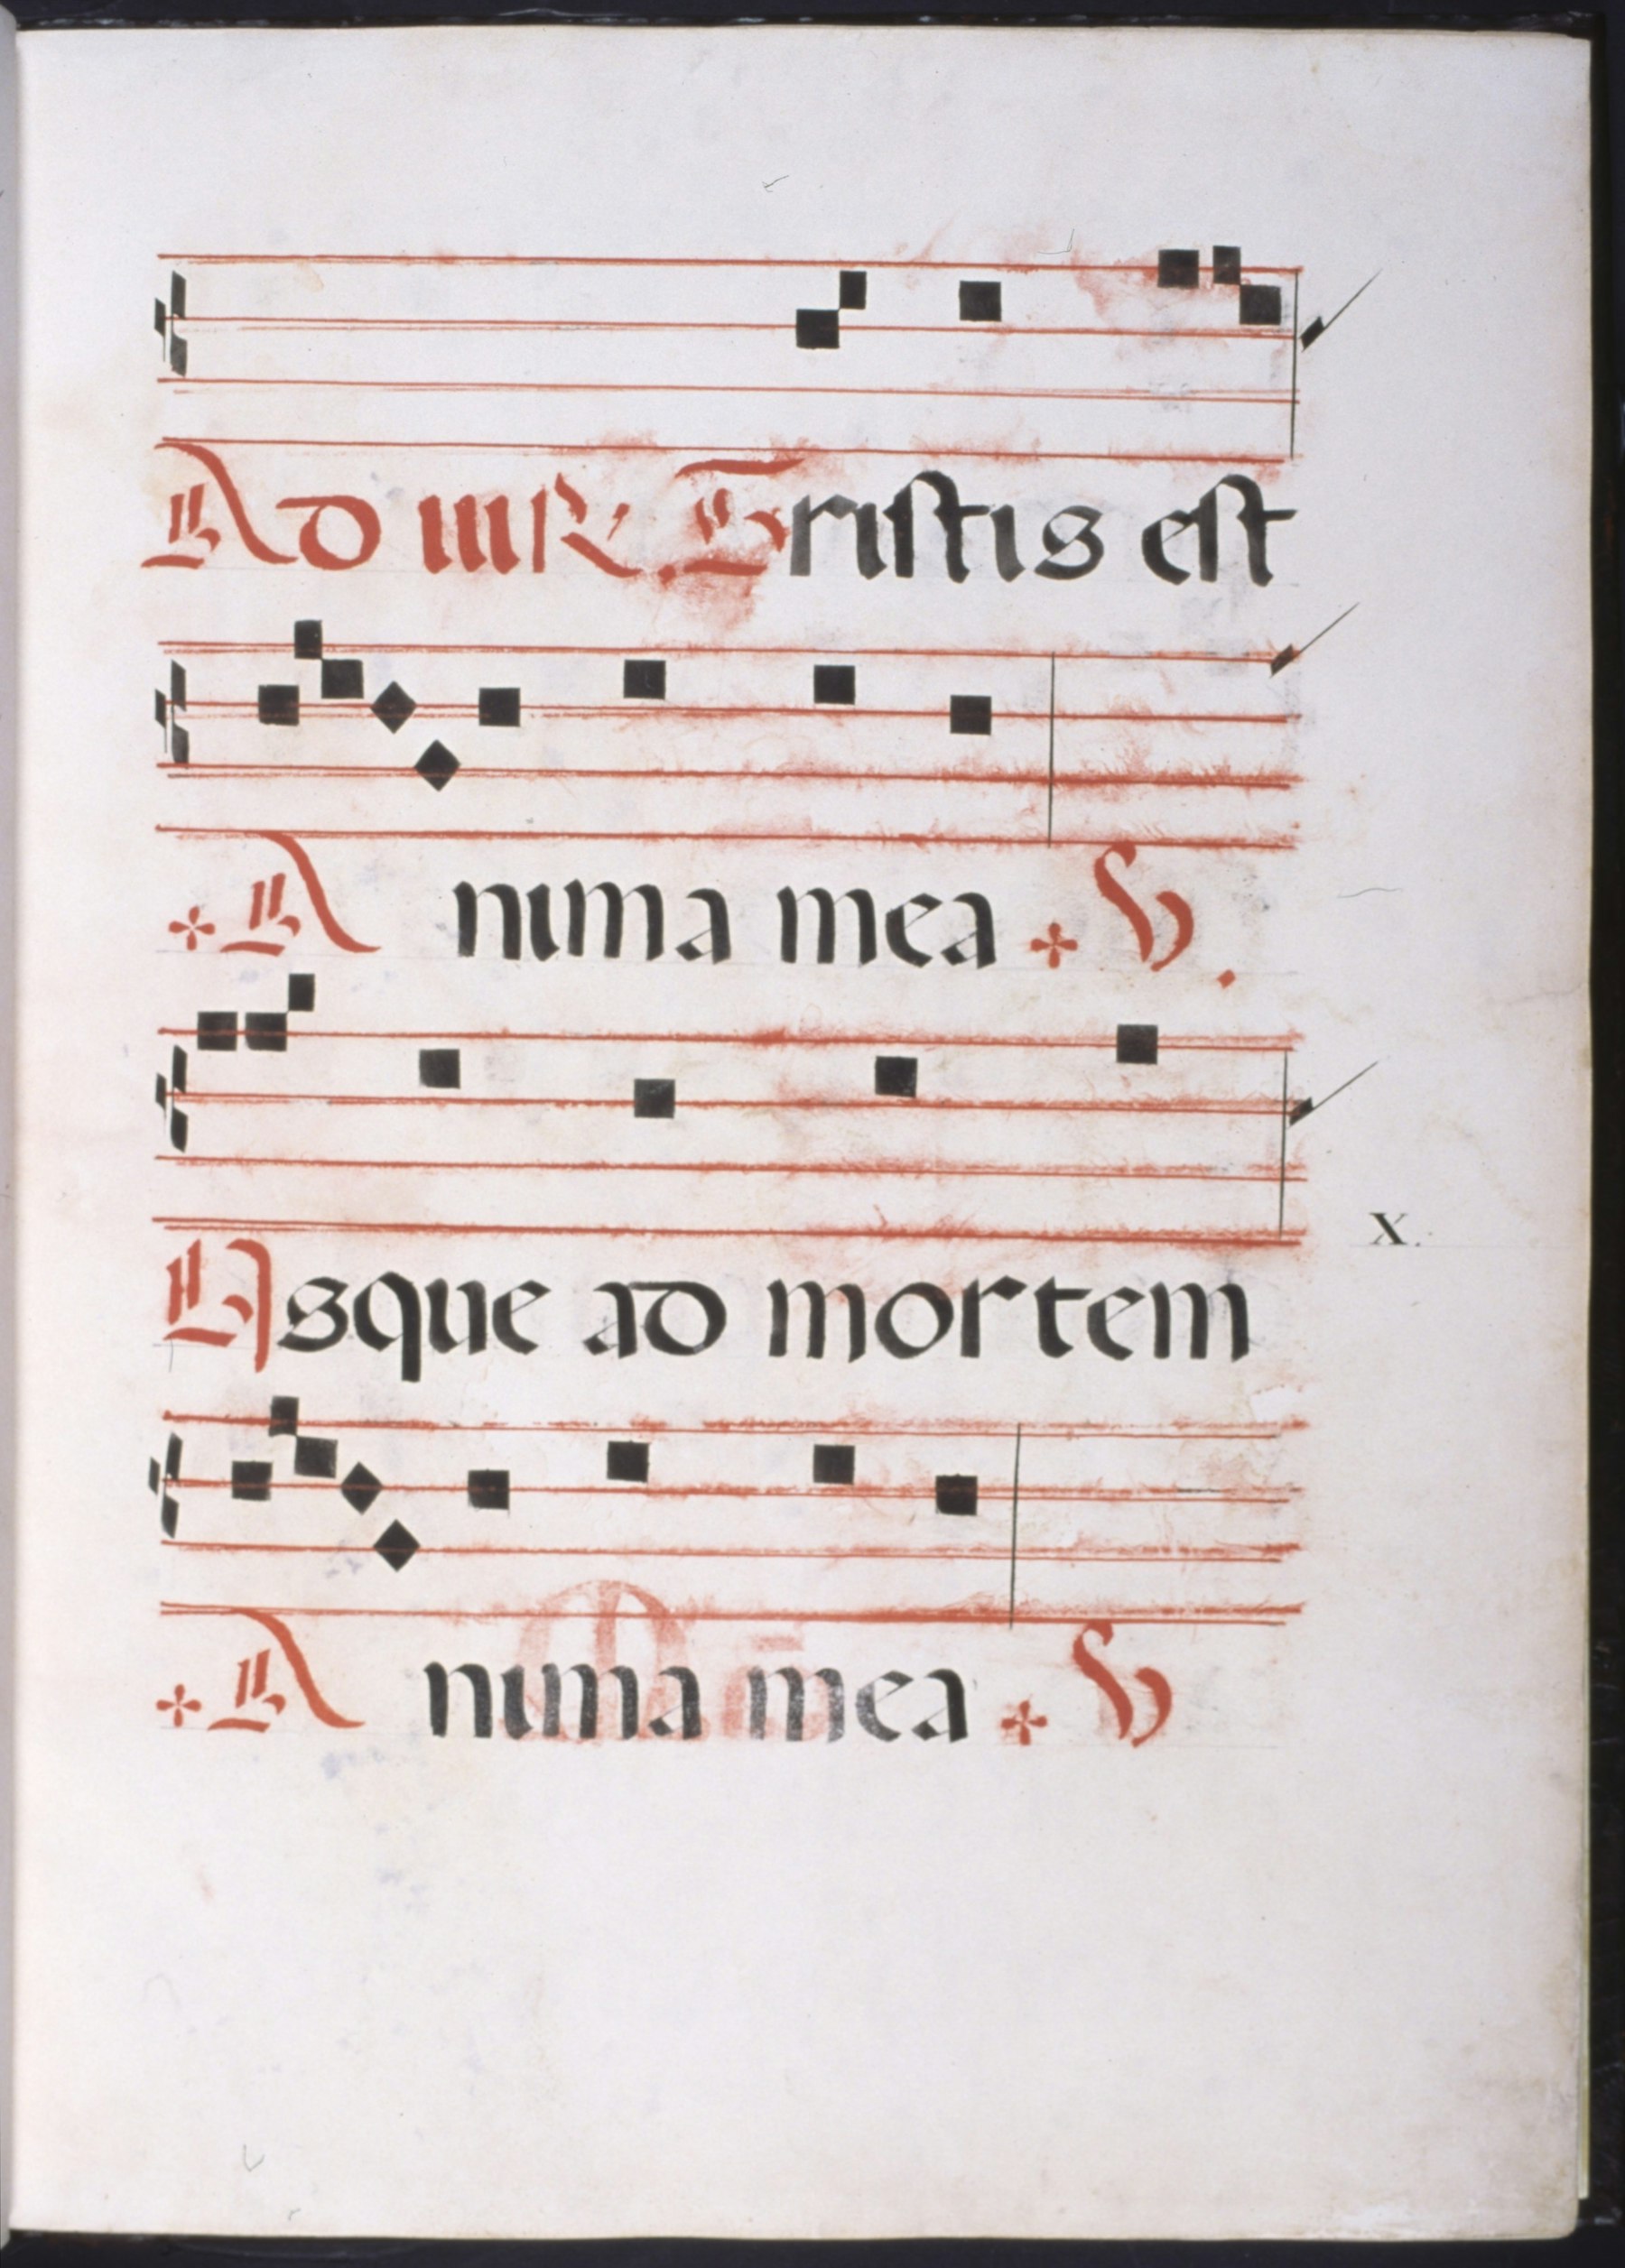 Ad iii R. Tristis est
+ Anima mea + V.
X.
Usque ad mortem
+ Anima mea + V